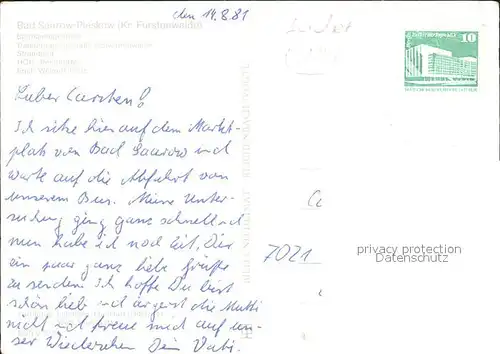 den 14.8.81
Bad Saarow-Pieskow (Kr. Fürstenwalde)
10
Lieber Carsten!
Ich sitze hier auf dem Markt-
platz von Bad Saarow und
warte auf die Abfahrt von
unserem Bus. Meine Unter-
suchung ging ganz schnell und
nun habe ich noch Zeit, Dir
ein paar ganz liebe Grüße
zu senden. Ich hoffe Du bist
schön lieb und ärgerst die Mutti
nicht und freue mich auf un-
ser Wiedersehen Dein Vati.
7021
privacy protection
Datenschutz